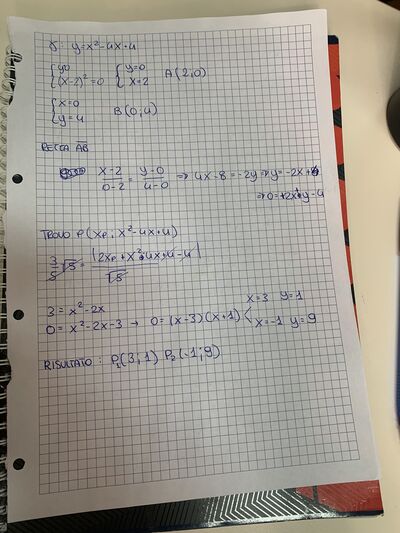 γ: y=x²-4x+4
{y=0 {y=0 A(2;0)
{(x-2)²=0 {x=2
{x=0 B(0;4)
{y=4
RETTA AB
(x-2)/(0-2) = (y-0)/(4-0) ⇒ 4x-8=-2y ⇒ y=-2x+4
⇒ 0=+2x+y-4
TROVO P(xp; x²-4x+4)
3/5 √5 = |2xp+x²-4x+4-4|/√5
3=x²-2x
0=x²-2x-3 → 0=(x-3)(x+1) x=3 y=1
x=-1 y=9
RISULTATO: P₁(3;1) P₂(-1;9)